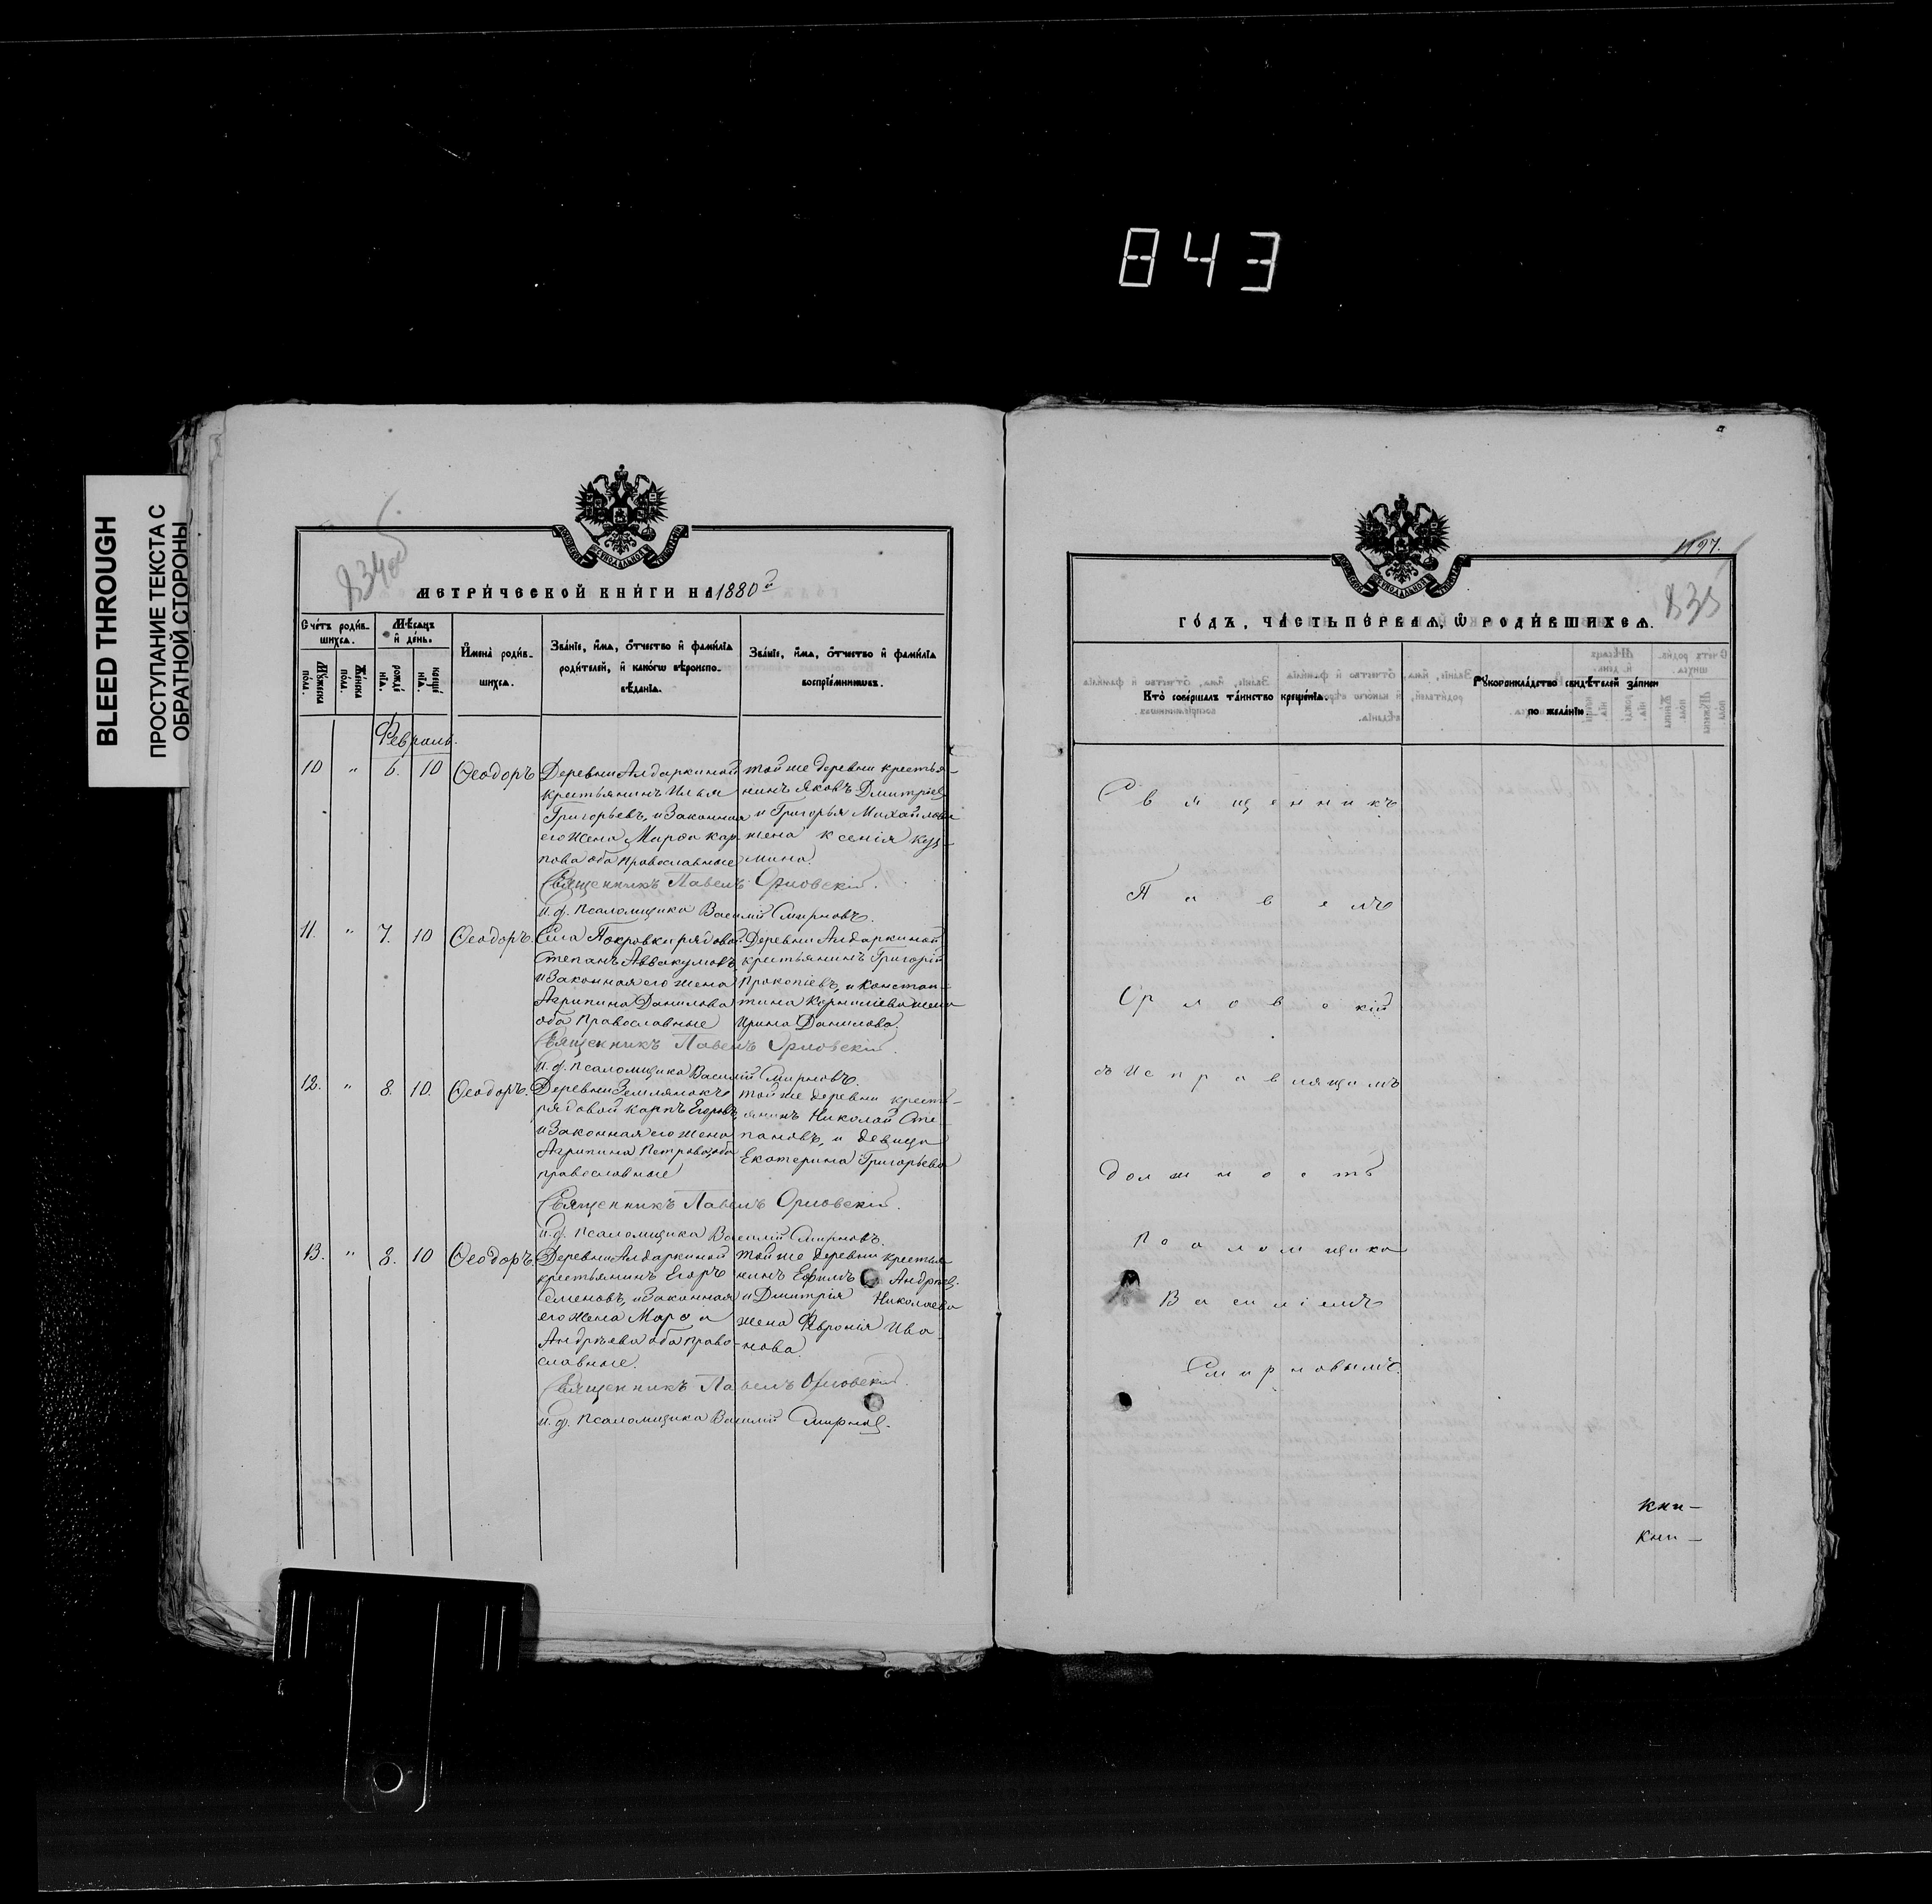 843
BLEED THROUGH
ПРОСТУПАНИЕ ТЕКСТА С
ОБРАТНОЙ СТОРОНЫ
834об
МЕТРИ́ЧЕСКОЙ КНИ́ГИ НА 1880й
Сче́тъ роди́в-
шихсѧ.
Мѣсяцъ
и҆ де́нь.
Мꙋжеска
пола.
Женска
пола.
рожде
нїѧ.
креще
нїѧ.
И҆мена̀ роди́в-
шихсѧ.
Зва́нїе, и҆́мѧ, ѻ҆́тчество и҆ фами́лїѧ
роди́телей, и҆ како́гѡ вѣроиспо-
вѣ́данїѧ.
Зва́нїе, и҆́мѧ, ѻ҆́тчество и҆ фами́лїѧ
воспрїе́мниковъ.
Февраль.
10 " 6. 10 Ѳеодоръ
Деревни Алдаркиной
крестьянинъ Илья
Григорьевъ, и Законная
его жена Марѳа Кар-
пова оба православные
той же деревни крестья-
нинъ Яковъ Дмитріев
и Григорья Михайлова
жена Ксенія Кузь-
мина.
Священникъ Павелъ Орловскій.
И. д. Псаломщика Василій Смирновъ.
11. " 7. 10 Ѳеодоръ.
Села Покровки рядовой
Степанъ Аввакумовъ,
и Законная его жена
Агрипина Данилова
оба православные
Деревни Алдаркиной
крестьянинъ Григорій
Прокопіевъ, и Констан-
тина Корниліева жена
Ирина Данилова.
Священникъ Павелъ Орловскій.
И. д. Псаломщика Василій Смирновъ.
12. " 8. 10. Ѳеодоръ.
Деревни Землянокъ
рядовой Карпъ Егоровъ,
и Законная его жена
Агрипина Петрова, оба
православные
той же деревни кресть-
янинъ Николай Сте-
пановъ, и девица
Екатерина Григорьева
Священникъ Павелъ Орловскій.
И. д. Псаломщика Василій Смирновъ.
13. " 8. 10 Ѳеодоръ
Деревни Алдаркиной
крестьянинъ Егоръ
Семеновъ, и Законная
его жена Марѳа
Андреева оба право-
славные.
той же деревни крестья
нинъ Ефимъ Андреев.
и Дмитрія Николаева
жена Февронія Ива-
нова.
Священникъ Павелъ Орловскій.
И. д. Псаломщика Василій Смирнов.
1197.
835
ГО́ДЪ, ЧА́СТЬ ПЕ́РВАѦ, Ѡ҆ РОДИ́ВШИХСѦ.
Кто̀ соверша́лъ та́инство креще́нїѧ.
Рꙋкоприкла́дство свидѣ́телей за́писи
по жела́нїю.
Священникъ
Павелъ
Орловскій
съ Исправляящимъ
должность
Псаломщика
Василіемъ
Смирновымъ.
кни-
кни-